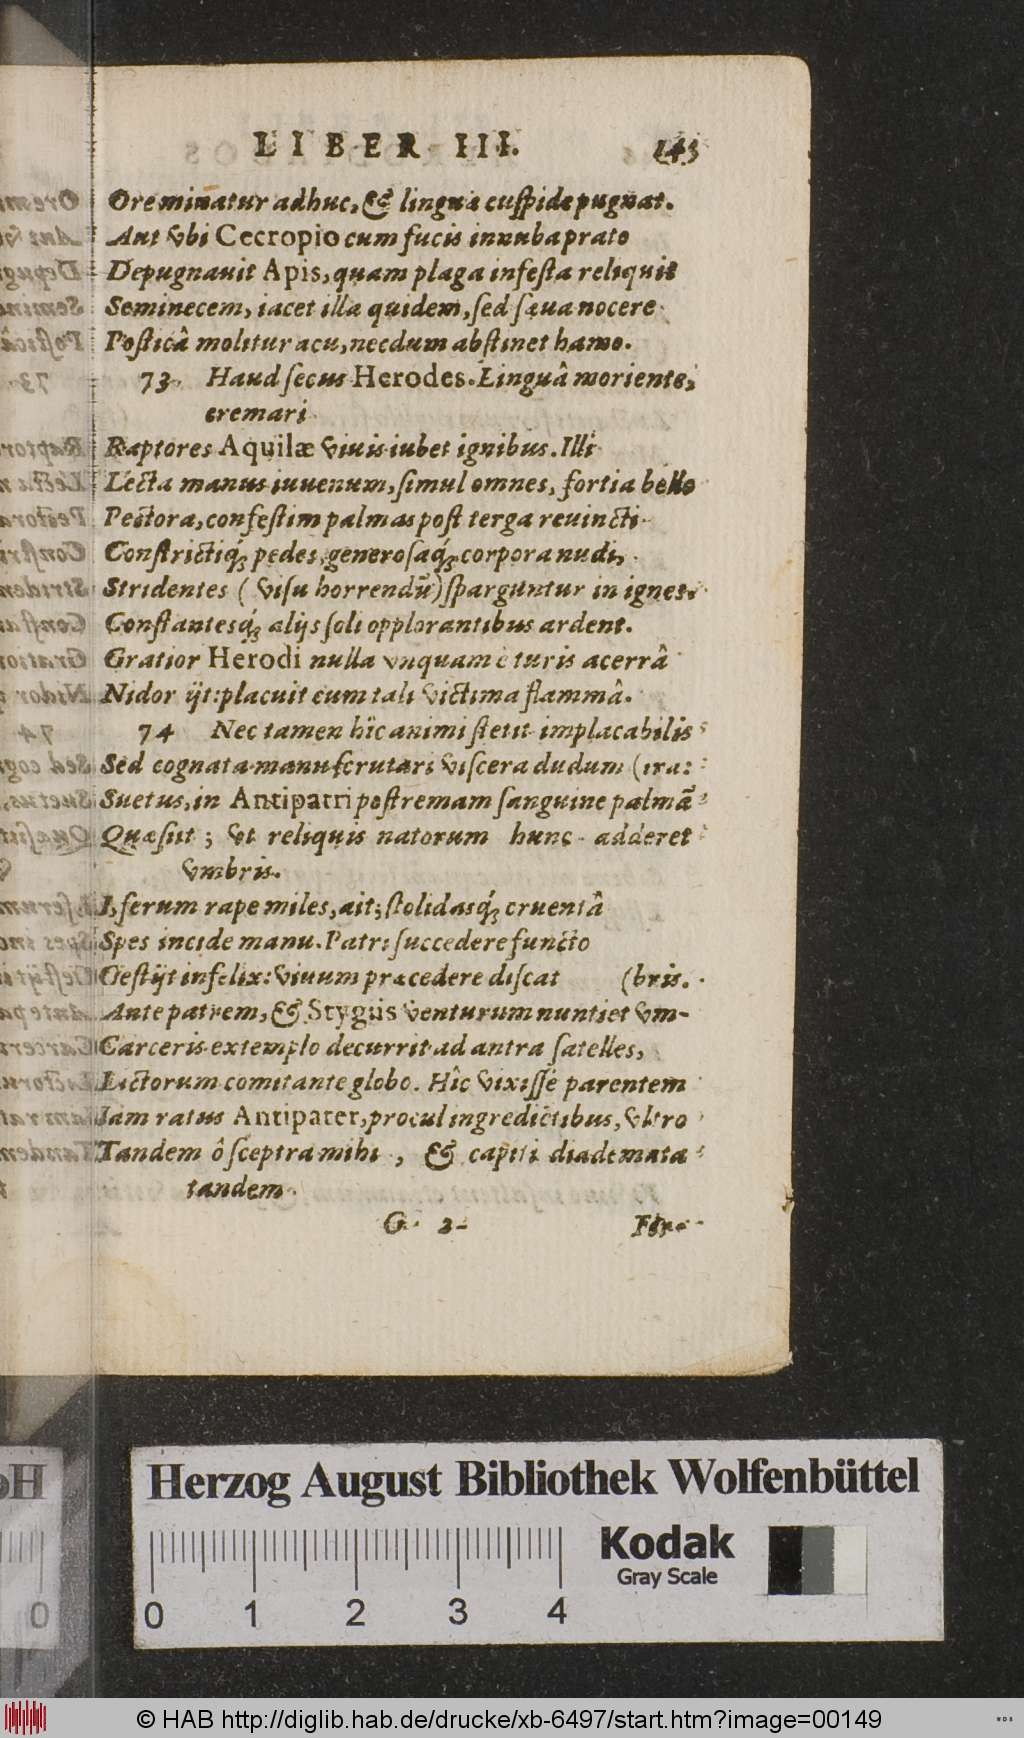 LIBER III. 143
Ore minatur adhuc, & linguæ cuspide pugnat.
Aut vbi Cecropio cum fucis in nuba prato
Depugnauit Apis, quam plaga infesta reliquit
Seminecem, iacet illa quidem, sed sæua nocere
Posticâ molitur acu, necdum abstinet hamo.
73. Haud secus Herodes. Linguâ moriente,
cremari
Raptores Aquilæ viuis iubet ignibus. Illi
Lecta manus iuuenum, simul omnes, fortia bello
Pectora, confestim palmas post terga reuincti
Constrictiq́; pedes, generosaq́; corpora nudi,
Stridentes ( visu horrendū) sparguntur in ignes.
Constantesq́; alijs soli opplorantibus ardent.
Gratior Herodi nulla vnquam è turis acerrâ
Nidor ijt: placuit cum tali victima flammâ.
74 Nec tamen hîc animi stetit implacabilis
Sed cognata manu scrutari viscera dudum (ira:
Suetus, in Antipatri postremam sanguine palmā
Quæsiit ; vt reliquis natorum hunc adderet
vmbris.
I, ferum rape miles, ait; stolidasq́; cruentâ
Spes incide manu. Patri succedere functo
Gestijt infelix: viuum præcedere discat (bris.
Ante patrem, & Stygiis venturum nuntiet vm-
Carceris extemplo decurrit ad antra satelles,
Lictorum comitante globo. Hîc vixisse parentem
Iam ratus Antipater, procul ingredientibus, vltro
Tandem ô sceptra mihi , & capiti diademata
tandem
G 2 For-
Herzog August Bibliothek Wolfenbüttel
Kodak
Gray Scale
0 1 2 3 4
0
© HAB http://diglib.hab.de/drucke/xb-6497/start.htm?image=00149